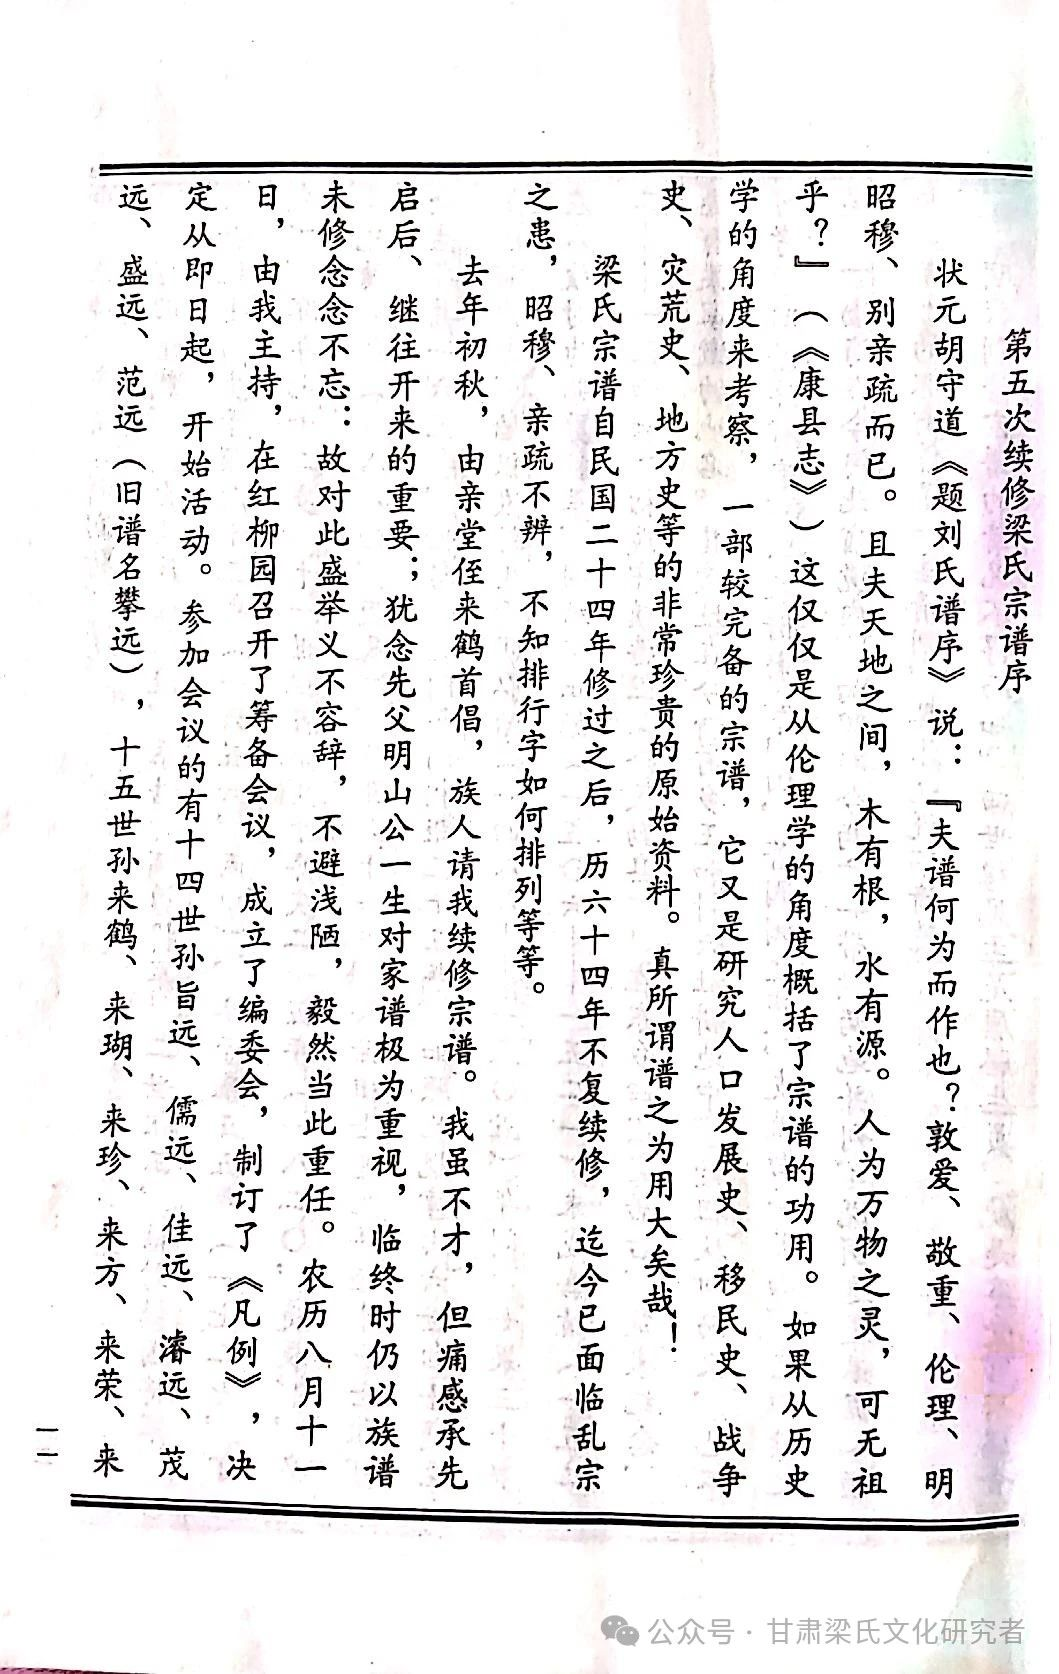 第五次续修梁氏宗谱序
状元胡守道《题刘氏谱序》说：『夫谱何为而作也？敦爱、敬重、伦理、明
昭穆、别亲疏而已。且夫天地之间，木有根，水有源。人为万物之灵，可无祖
乎？』（《康县志》）这仅仅是从伦理学的角度概括了宗谱的功用。如果从历史
学的角度来考察，一部较完备的宗谱，它又是研究人口发展史、移民史、战争
史、灾荒史、地方史等的非常珍贵的原始资料。真所谓谱之为用大矣哉！
梁氏宗谱自民国二十四年修过之后，历六十四年不复续修，迄今已面临乱宗
之患，昭穆、亲疏不辨，不知排行字如何排列等等。
去年初秋，由亲堂侄来鹤首倡，族人请我续修宗谱。我虽不才，但痛感承先
启后、继往开来的重要；犹念先父明山公一生对家谱极为重视，临终时仍以族谱
未修念念不忘：故对此盛举义不容辞，不避浅陋，毅然当此重任。农历八月十一
日，由我主持，在红柳园召开了筹备会议，成立了编委会，制订了《凡例》，决
定从即日起，开始活动。参加会议的有十四世孙旨远、儒远、佳远、濬远、茂
远、盛远、范远（旧谱名攀远），十五世孙来鹤、来瑚、来珍、来方、来荣、来
一一
公众号·甘肃梁氏文化研究者